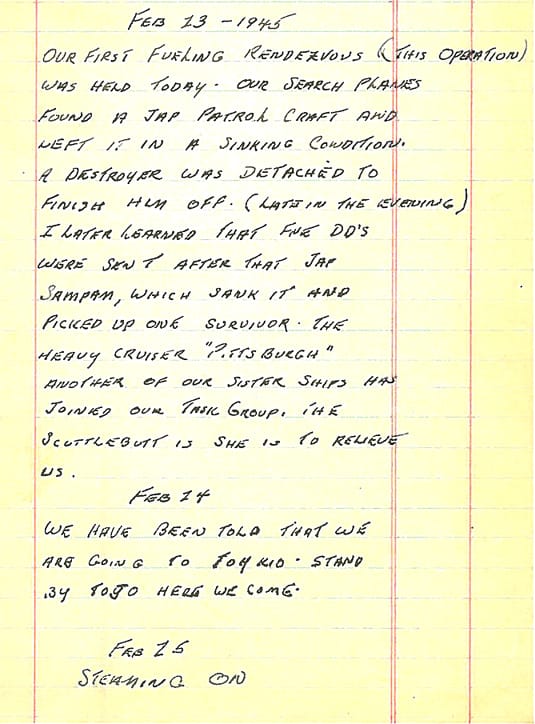 FEB 13 - 1945
OUR FIRST FUELING RENDEZVOUS (THIS OPERATION)
WAS HELD TODAY. OUR SEARCH PLANES
FOUND A JAP PATROL CRAFT AND
LEFT IT IN A SINKING CONDITION.
A DESTROYER WAS DETACHED TO
FINISH HIM OFF. (LATE IN THE EVENING)
I LATER LEARNED THAT FIVE DD'S
WERE SENT AFTER THAT JAP
SAMPAM, WHICH SANK IT AND
PICKED UP ONE SURVIVOR. THE
HEAVY CRUISER "PITTSBURGH"
ANOTHER OF OUR SISTER SHIPS HAS
JOINED OUR TASK GROUP. THE
SCUTTLEBUTT IS SHE IS TO RELIEVE
US.
FEB 14
WE HAVE BEEN TOLD THAT WE
ARE GOING TO TOYKIO. STAND
BY TOJO HERE WE COME.
FEB 15
STEAMING ON